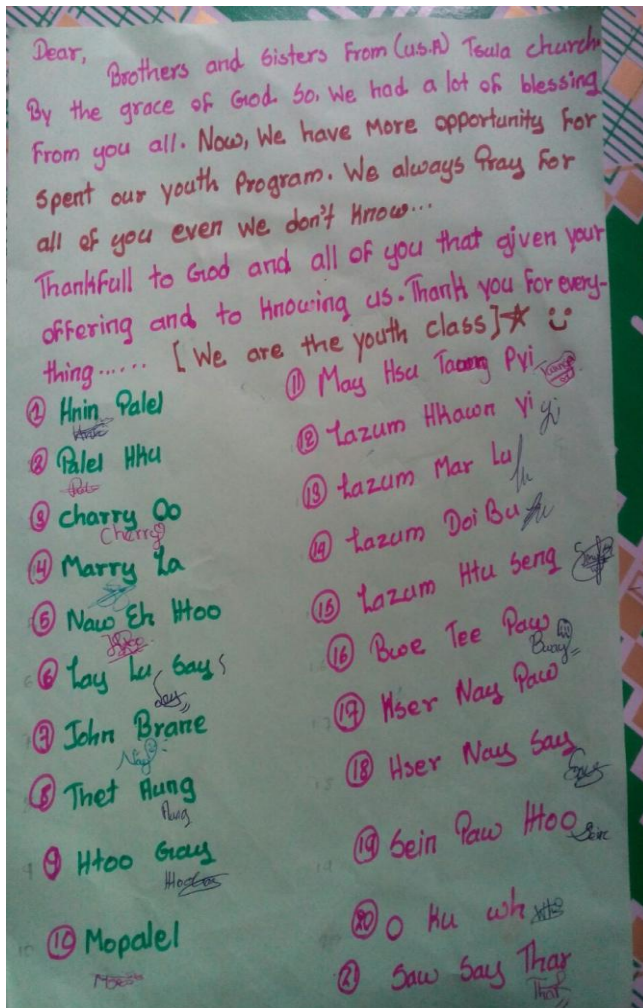 Dear,
Brothers and Sisters From (U.S.A) Tsula church
By the grace of God. So, We had a lot of blessing
From you all. Now, We have More opportunity For
spent our youth Program. We always Pray For
all of you even We don't Know...
Thankfull to God and all of you that given your
offering and to Knowing us. Thank you For every-
thing...... [We are the youth class]
① Hnin Palel
② Palel Hku
③ charry Oo
Cherry
④ Marry La
⑤ Naw Eh Htoo
⑥ Lay Lu Say
Say
⑦ John Brane
Nay
⑧ Thet Aung
Aung
⑨ Htoo Gay
⑩ Mopalel
⑪ May Hsu Pyi
⑫ Lazum Hkawn Yi
Yi
⑬ Lazum Mar Lu
Lu
⑭ Lazum Doi Bu
⑮ Lazum Htu Seng
⑯ Bwe Tee Paw
Bway
⑰ Hser Nay Paw
⑱ Hser Nay Say
⑲ Sein Paw Htoo
Sein
⑳ O Ku wh
㉑ Saw Say Thar
Thar